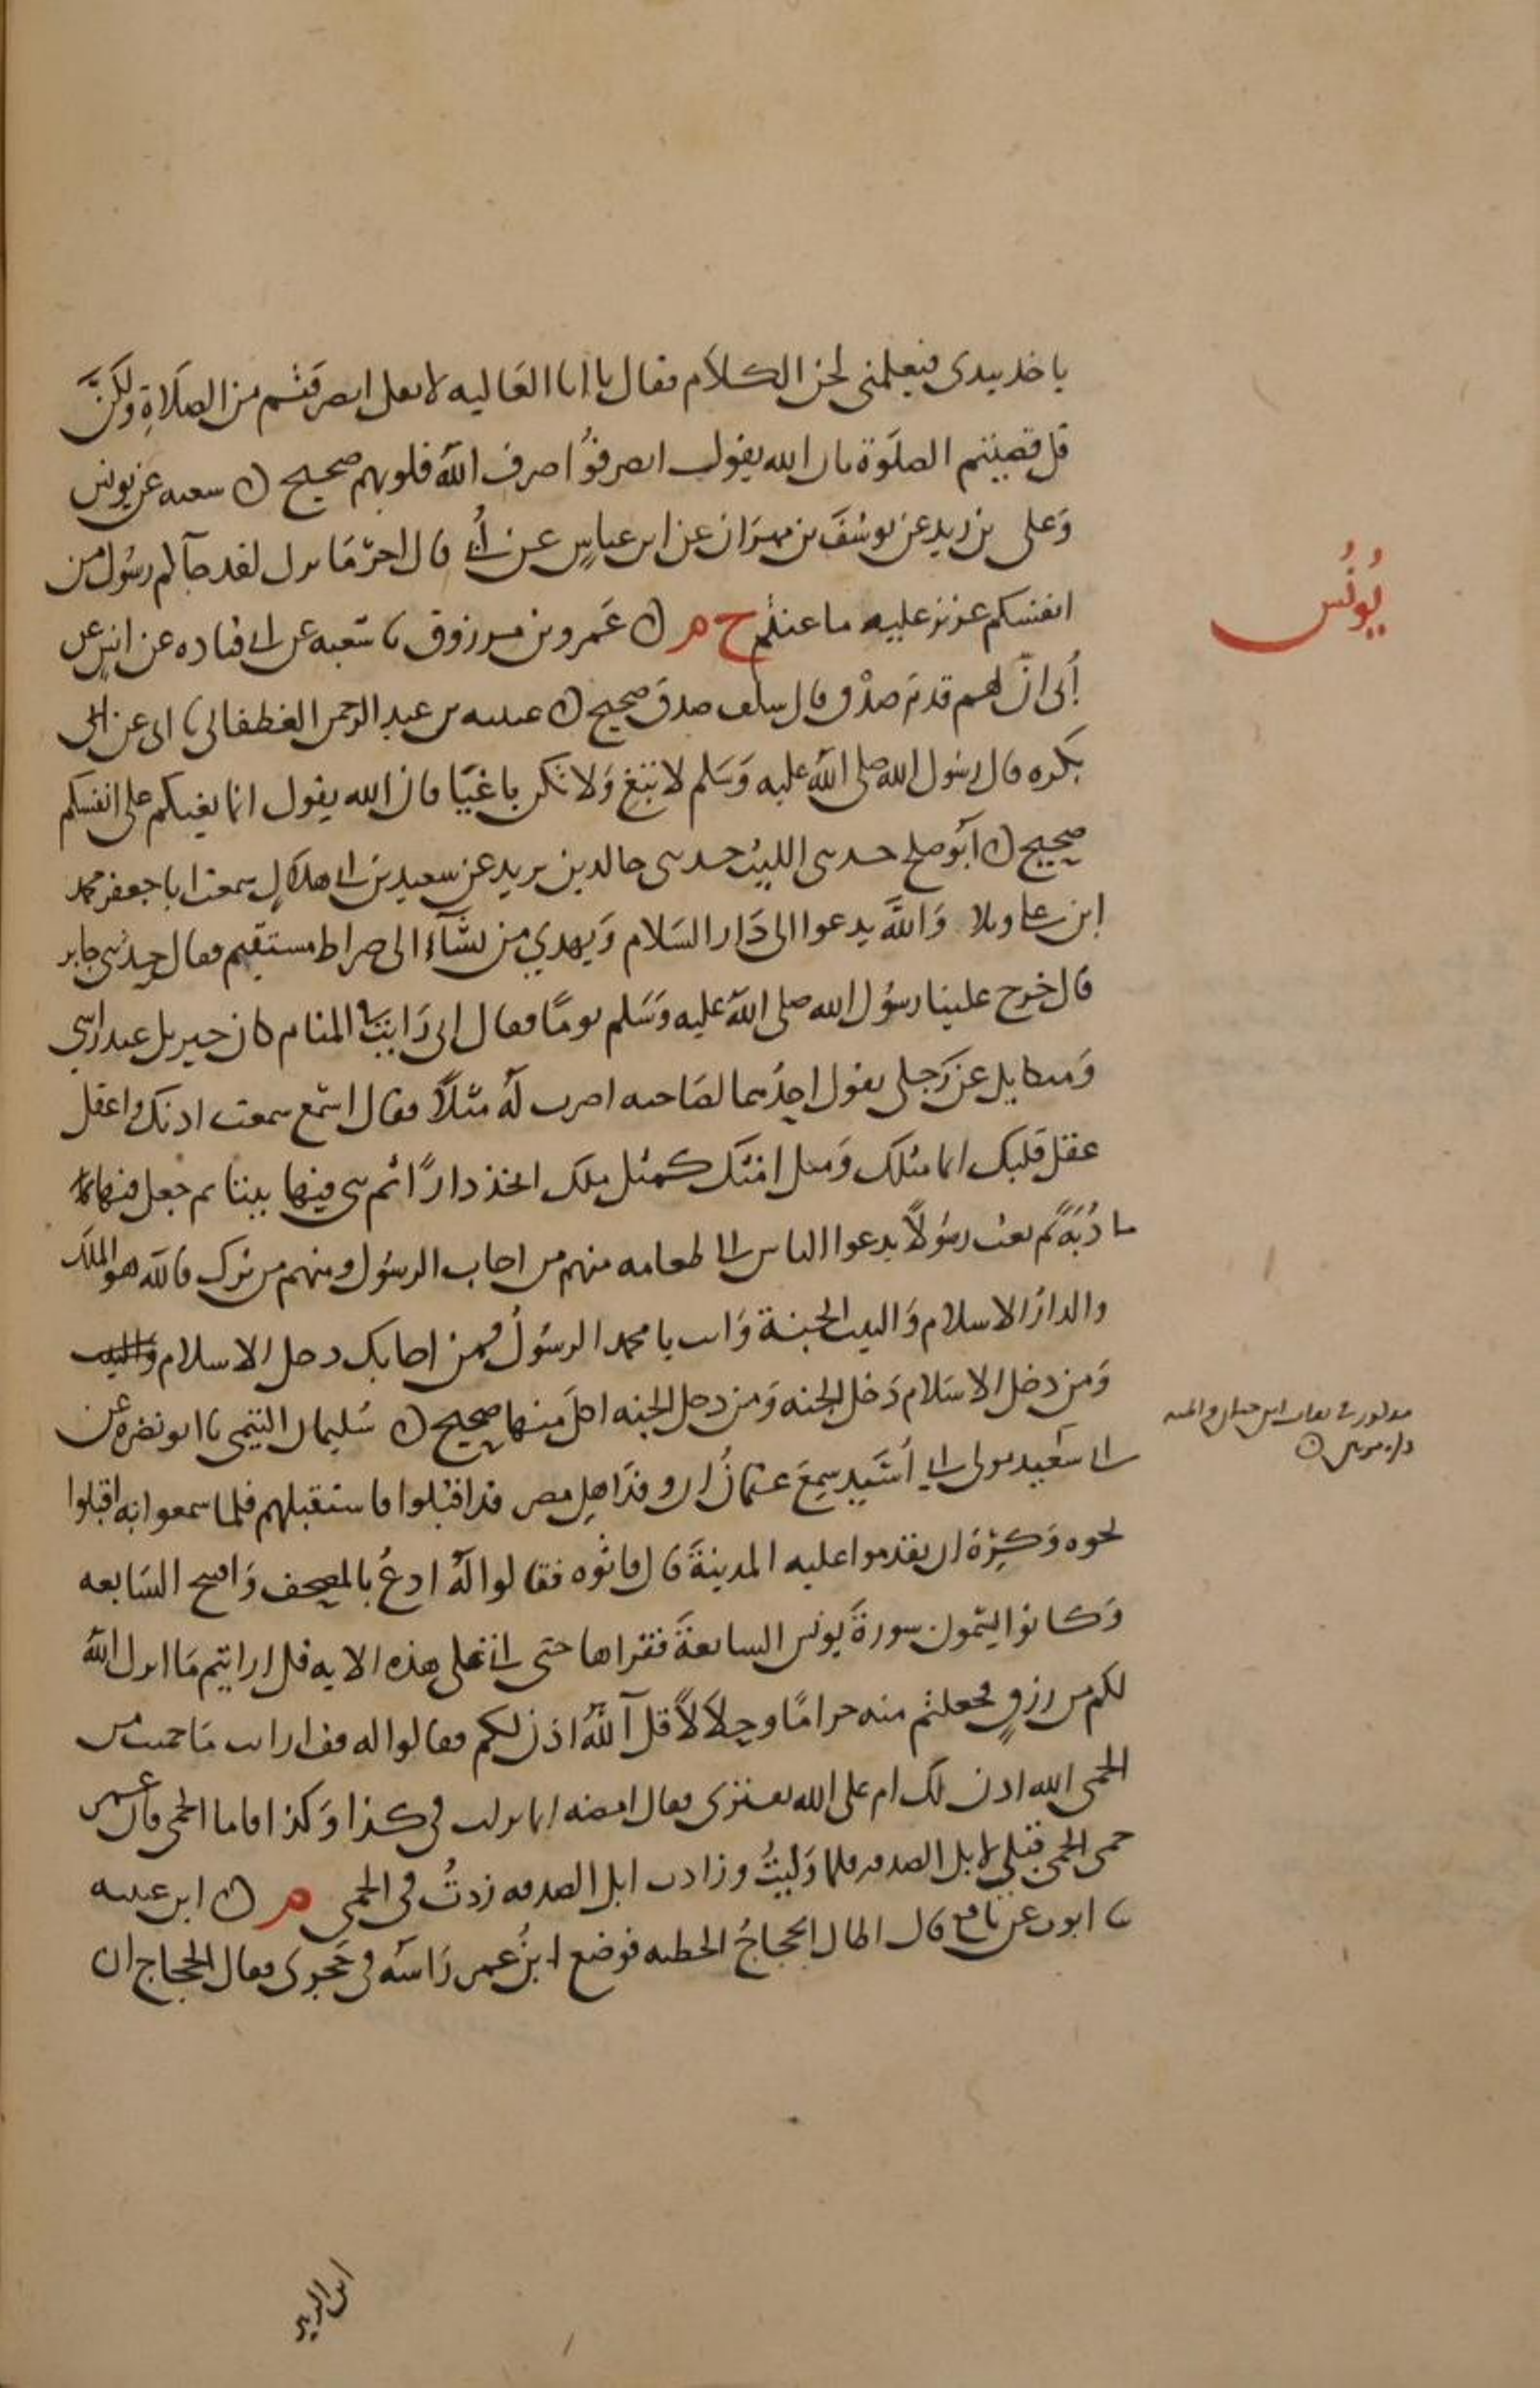 ياخذ بيدى فيعلمنى لحن الكلام فقال يا ابا العاليه لا تقل انصرفتم من الصلاة ولكن
قل قضيتم الصلوة فان الله يقول انصرفوا صرف الله قلوبهم صحيح ن شعبه عن يونس
وعلى بن زيد عن يوسف بن مهران عن ابن عباس عن أبي قال اخر ما نزل لقد جآكم رسول من
انفسكم عزيز عليه ما عنتم خ م ن عمرو بن مرزوق نا شعبه عن قتاده عن انس عن
أبى ان لهم قدم صدق قال سلف صدق صحيح ن عيينه بن عبد الرحمن الغطفانى نا ابى عن ابى
بكره قال رسول الله صلى الله عليه وسلم لا تبغ ولا تكن باغيا فان الله يقول انما بغيكم على انفسكم
صحيح ن ابو صلح حدثنى الليث حدثنى خالد بن يزيد عن سعيد بن ابى هلال سمعت ابا جعفر محمد
ابن على وتلا والله يدعوا الى دار السلام ويهدي من يشآء الى صراط مستقيم فقال حدثنى جابر
قال خرج علينا رسول الله صلى الله عليه وسلم يوما فقال انى رايت فى المنام كان جبريل عند راسي
وميكايل عند رجلى يقول احدهما لصاحبه اضرب له مثلا فقال اسمع سمعت اذنك واعقل
عقل قلبك انما مثلك ومثل امتك كمثل ملك اتخذ دارا ثم بنى فيها بيتا ثم جعل فيها
مادبة ثم بعث رسولا يدعوا الناس الى طعامه منهم من اجاب الرسول ومنهم من ترك فالله هو الملك
والدار الاسلام والبيت الجنة وانت يا محمد الرسول فمن اجابك دخل الاسلام
ومن دخل الاسلام دخل الجنه ومن دخل الجنه اكل منها صحيح ن سليمان التيمى نا ابو نضره عن
ابى سعيد مولى ابي أسيد سمع عثمان ان وفد اهل مصر قد اقبلوا فاستقبلهم فلما سمعوا به اقبلوا
نحوه وكره ان يقدموا عليه المدينة قال فاتوه فقالوا له ادع بالمصحف وافتح السابعه
وكانوا يسمون سورة يونس السابعة فقراها حتى اتى على هذه الايه قل ارايتم ما انزل الله
لكم من رزق فجعلتم منه حراما وحلالا قل آلله اذن لكم فقالوا له قف ارايت ما حميت من
الحمى الله اذن لك ام على الله تفترى فقال امضه انما نزلت فى كذا وكذا فاما الحمى فان عمر
حمى الحمى قبلي لابل الصدقه فلما وليت وزادت ابل الصدقه زدت فى الحمى م ن ابن عليه
نا ايوب عن نافع قال اطال الحجاج الخطبه فوضع ابن عمر راسه فى حجرى فقال الحجاج ان
يونس
ابن الزبير